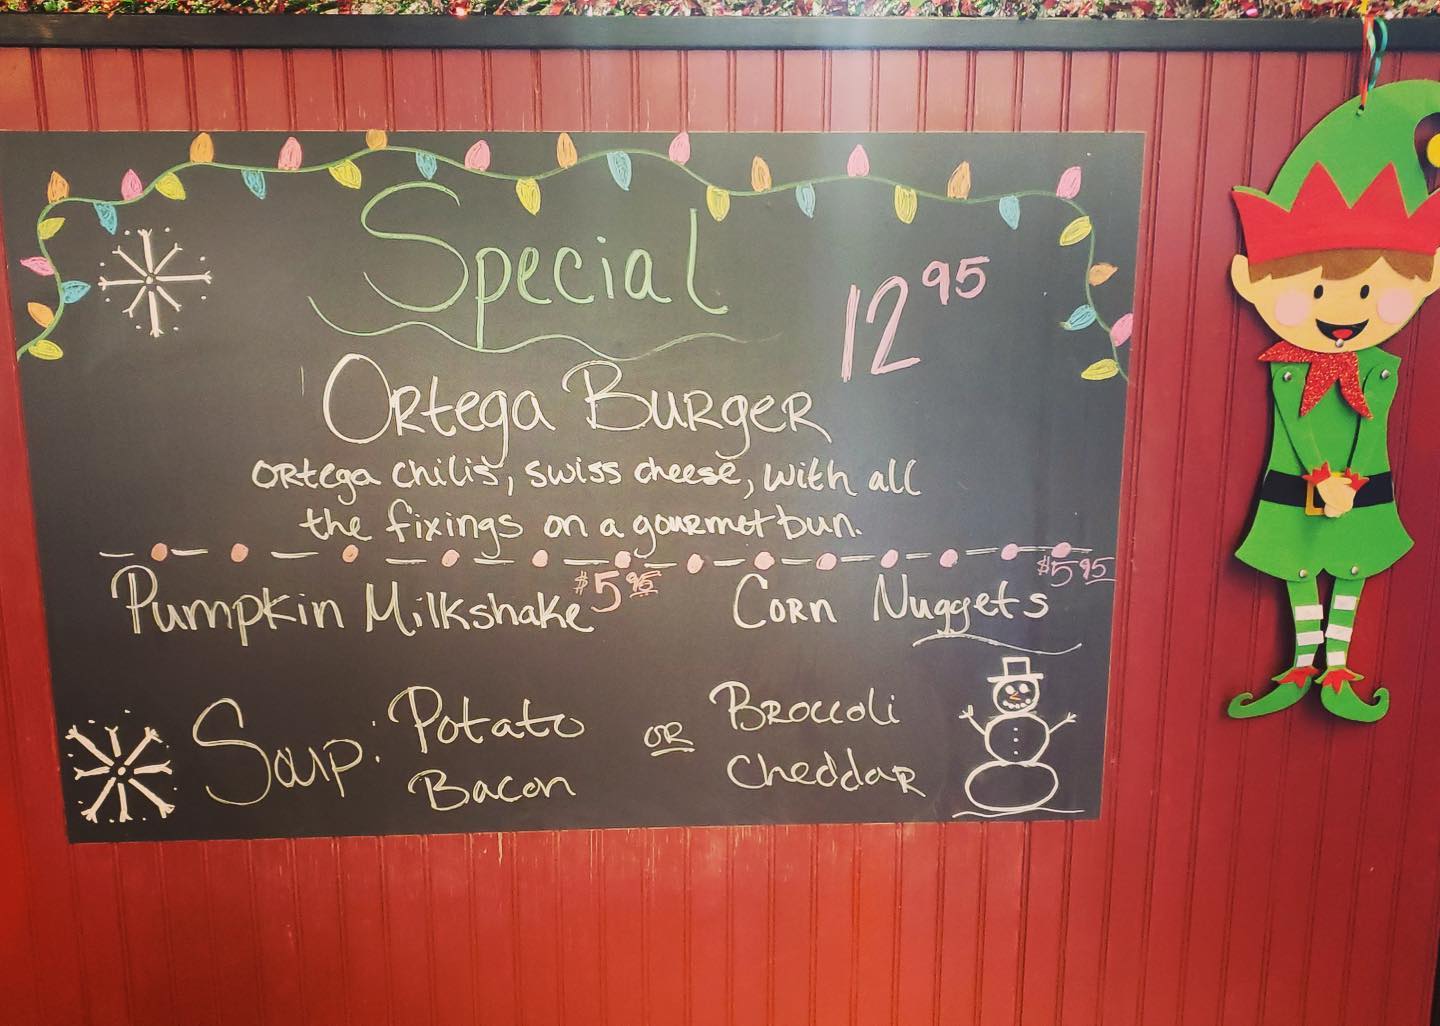 Special
12 95
Ortega Burger
Ortega chilis, swiss cheese, with all
the fixings on a gourmet bun.
Pumpkin Milkshake $5 95
Corn Nuggets $5 95
Soup: Potato Bacon
or
Broccoli Cheddar